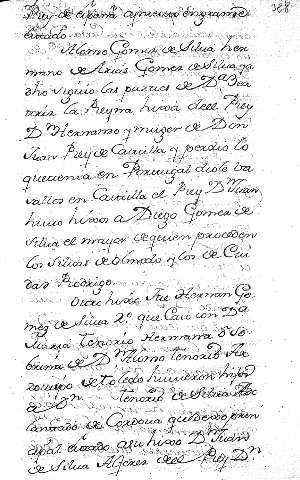 Rey de españa aprecio engrande
estado.
Alonso Gomez de Silua her
mano de Arias Gomez de Silua ya
dho siguio las partes de D.ª Bea
triz la Reyna hixa del Rey
D.n Hernando y muger de Don
Juan Rey de Castilla y perdio lo
que tenia en Portugal diole ba
sallos en Castilla el Rey D.n Juan
hubo hixos a Diego Gomez de
Silua el mayor de quien proceden
los Siluas de olmedo y los de Ciu
dad Rodrigo.
Otro hixo, fue Hernan Go
mez de Silua 2.º que Caso con D.ª
Maria tenorio Hermana o So
brina de D.n Alonso tenorio Ar
zouispo de toledo hubieron hijo
a D.n tenorio de Silua Ade
lantado de Cordoua
cipal estado a su hixo D.n Juan
de Silua Alferez del Rey D.n